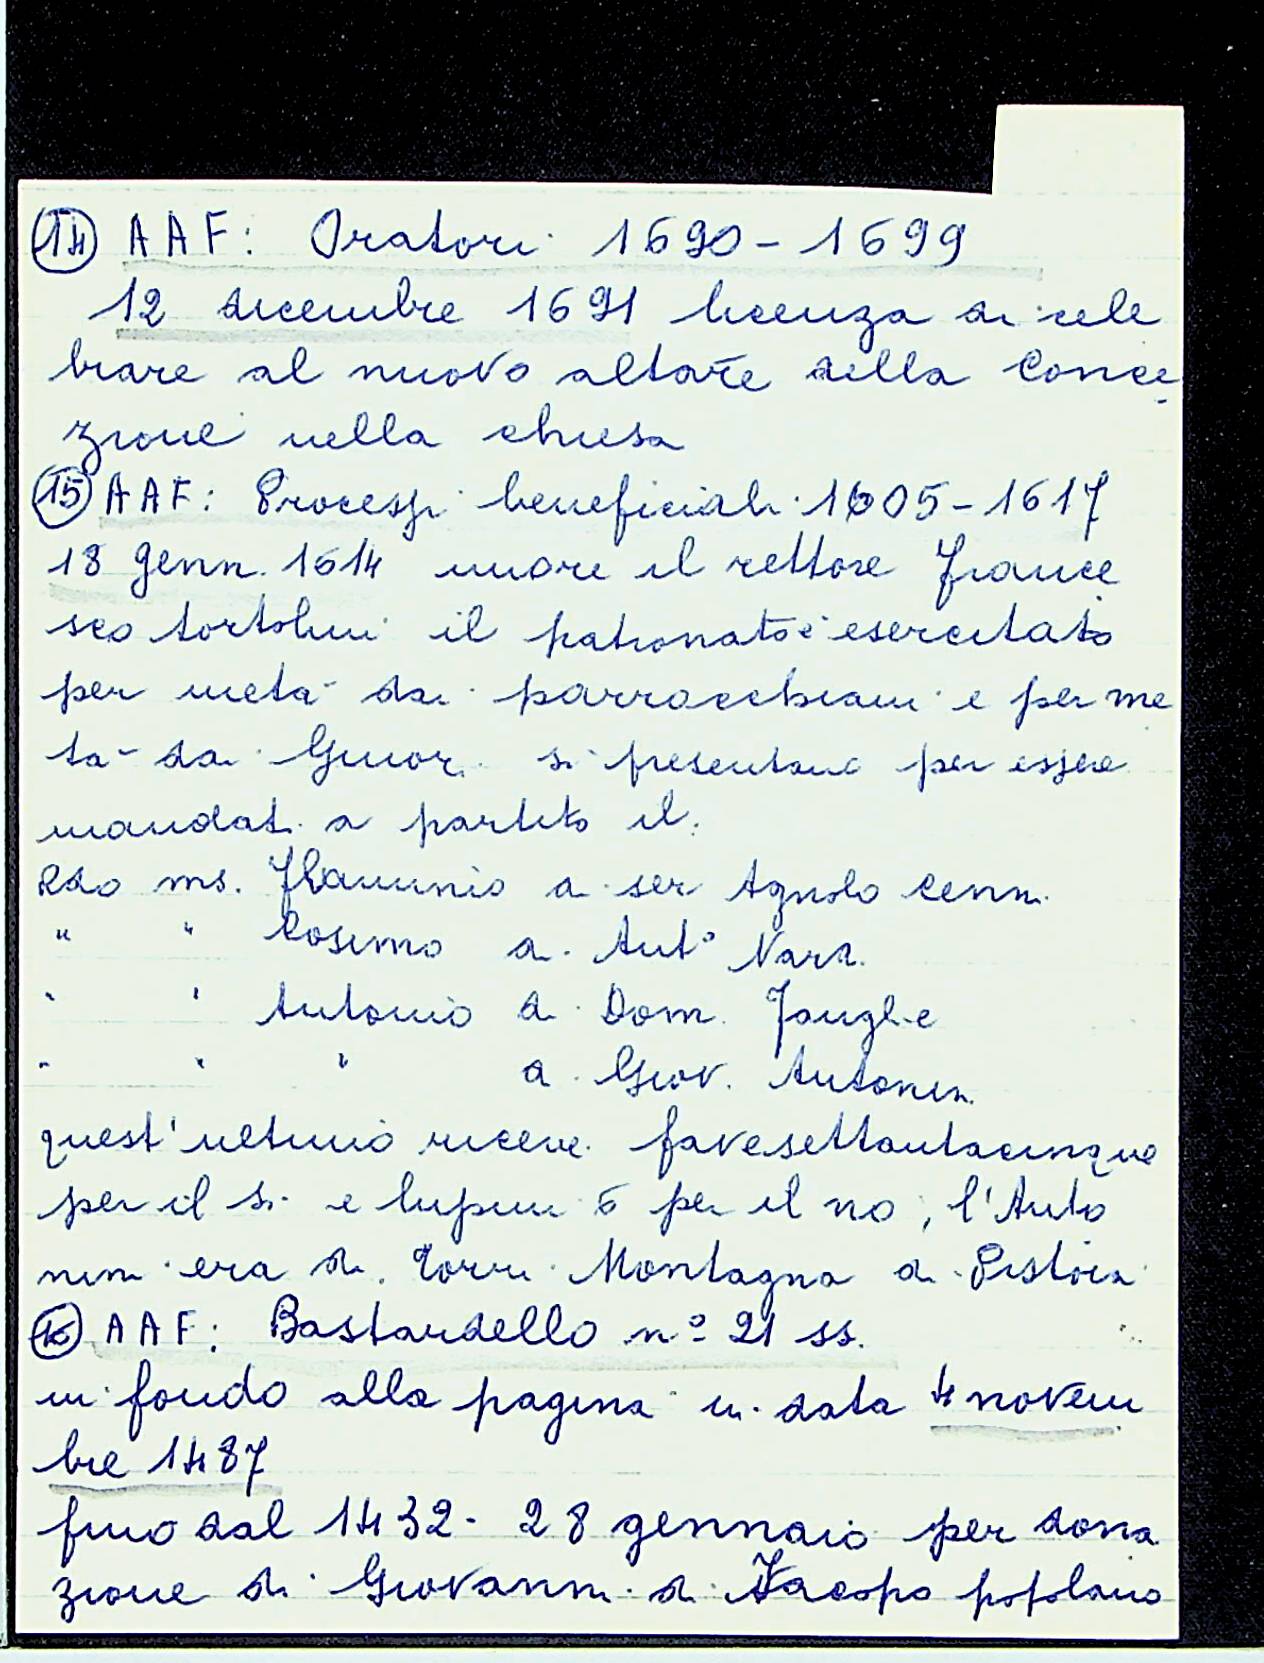 14 AAF: Oratori 1690-1699
12 dicembre 1691 licenza di cele
brare al nuovo altare della Conce
zione nella chiesa
15 AAF: Processi beneficiali 1605-1617
18 genn. 1614 muore il rettore France
sco Tortolini il patronato è esercitato
per metà dai parrocchiani e per me
tà dai si presentano per essere
mandati a partito il:
Rdo ms. Flaminio di ser Agnolo Cenni
" " Cosimo di Ant° Nardi
" " Antonio di Dom.
" " " di Giov. Antonini
quest'ultimo riceve fave settantacinque
per il si e lupini 6 per il no, l'Anto
nini era di Torri Montagna di Pistoia
16 AAF: Bastardello n° 21 ss.
in fondo alla pagina in data 4 novem
bre 1487
fino dal 1432 - 28 gennaio per dona
zione di Giovanni di Jacopo popolano